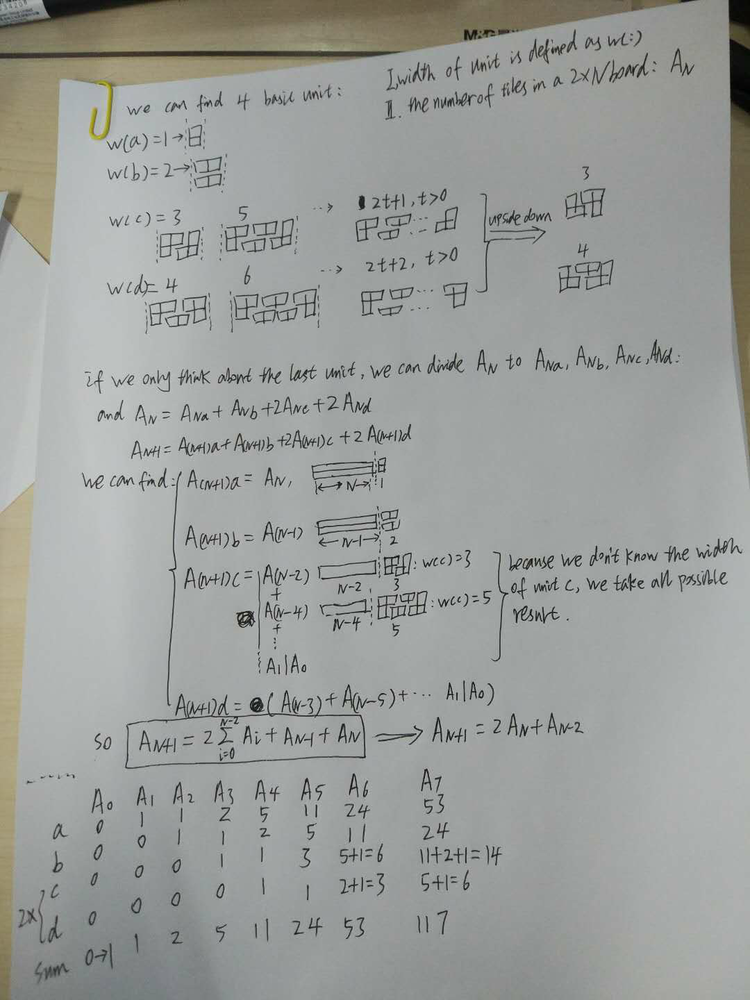 we can find 4 basic unit:
I. width of unit is defined as w(:)
II. the number of tiles in a 2×N board: AN
w(a)=1→
w(b)=2→
w(c)=3 5 ··→ 2t+1, t>0
w(d)=4 6 ··→ 2t+2, t>0
upside down
3
4
if we only think about the last unit, we can divide AN to ANa, ANb, ANc, ANd:
and AN = ANa + ANb + 2ANc + 2ANd
AN+1 = A(N+1)a + A(N+1)b + 2A(N+1)c + 2A(N+1)d
we can find:
A(N+1)a = AN, N 1
A(N+1)b = A(N-1) N-1 2
A(N+1)c = A(N-2) N-2 3 : w(c)=3
+
A(N-4) N-4 5 : w(c)=5
+
⋮
A1|A0
because we don't know the width
of unit c, we take all possible
result.
A(N+1)d = (A(N-3) + A(N-5) + ··· A1|A0)
so AN+1 = 2 N-2∑i=0 Ai + AN-1 + AN → AN+1 = 2AN + AN-2
A0 A1 A2 A3 A4 A5 A6 A7
a 0 1 1 2 5 11 24 53
b 0 0 1 1 2 5 11 24
2× c 0 0 0 1 1 3 5+1=6 11+2+1=14
d 0 0 0 0 1 1 2+1=3 5+1=6
sum 0→1 1 2 5 11 24 53 117